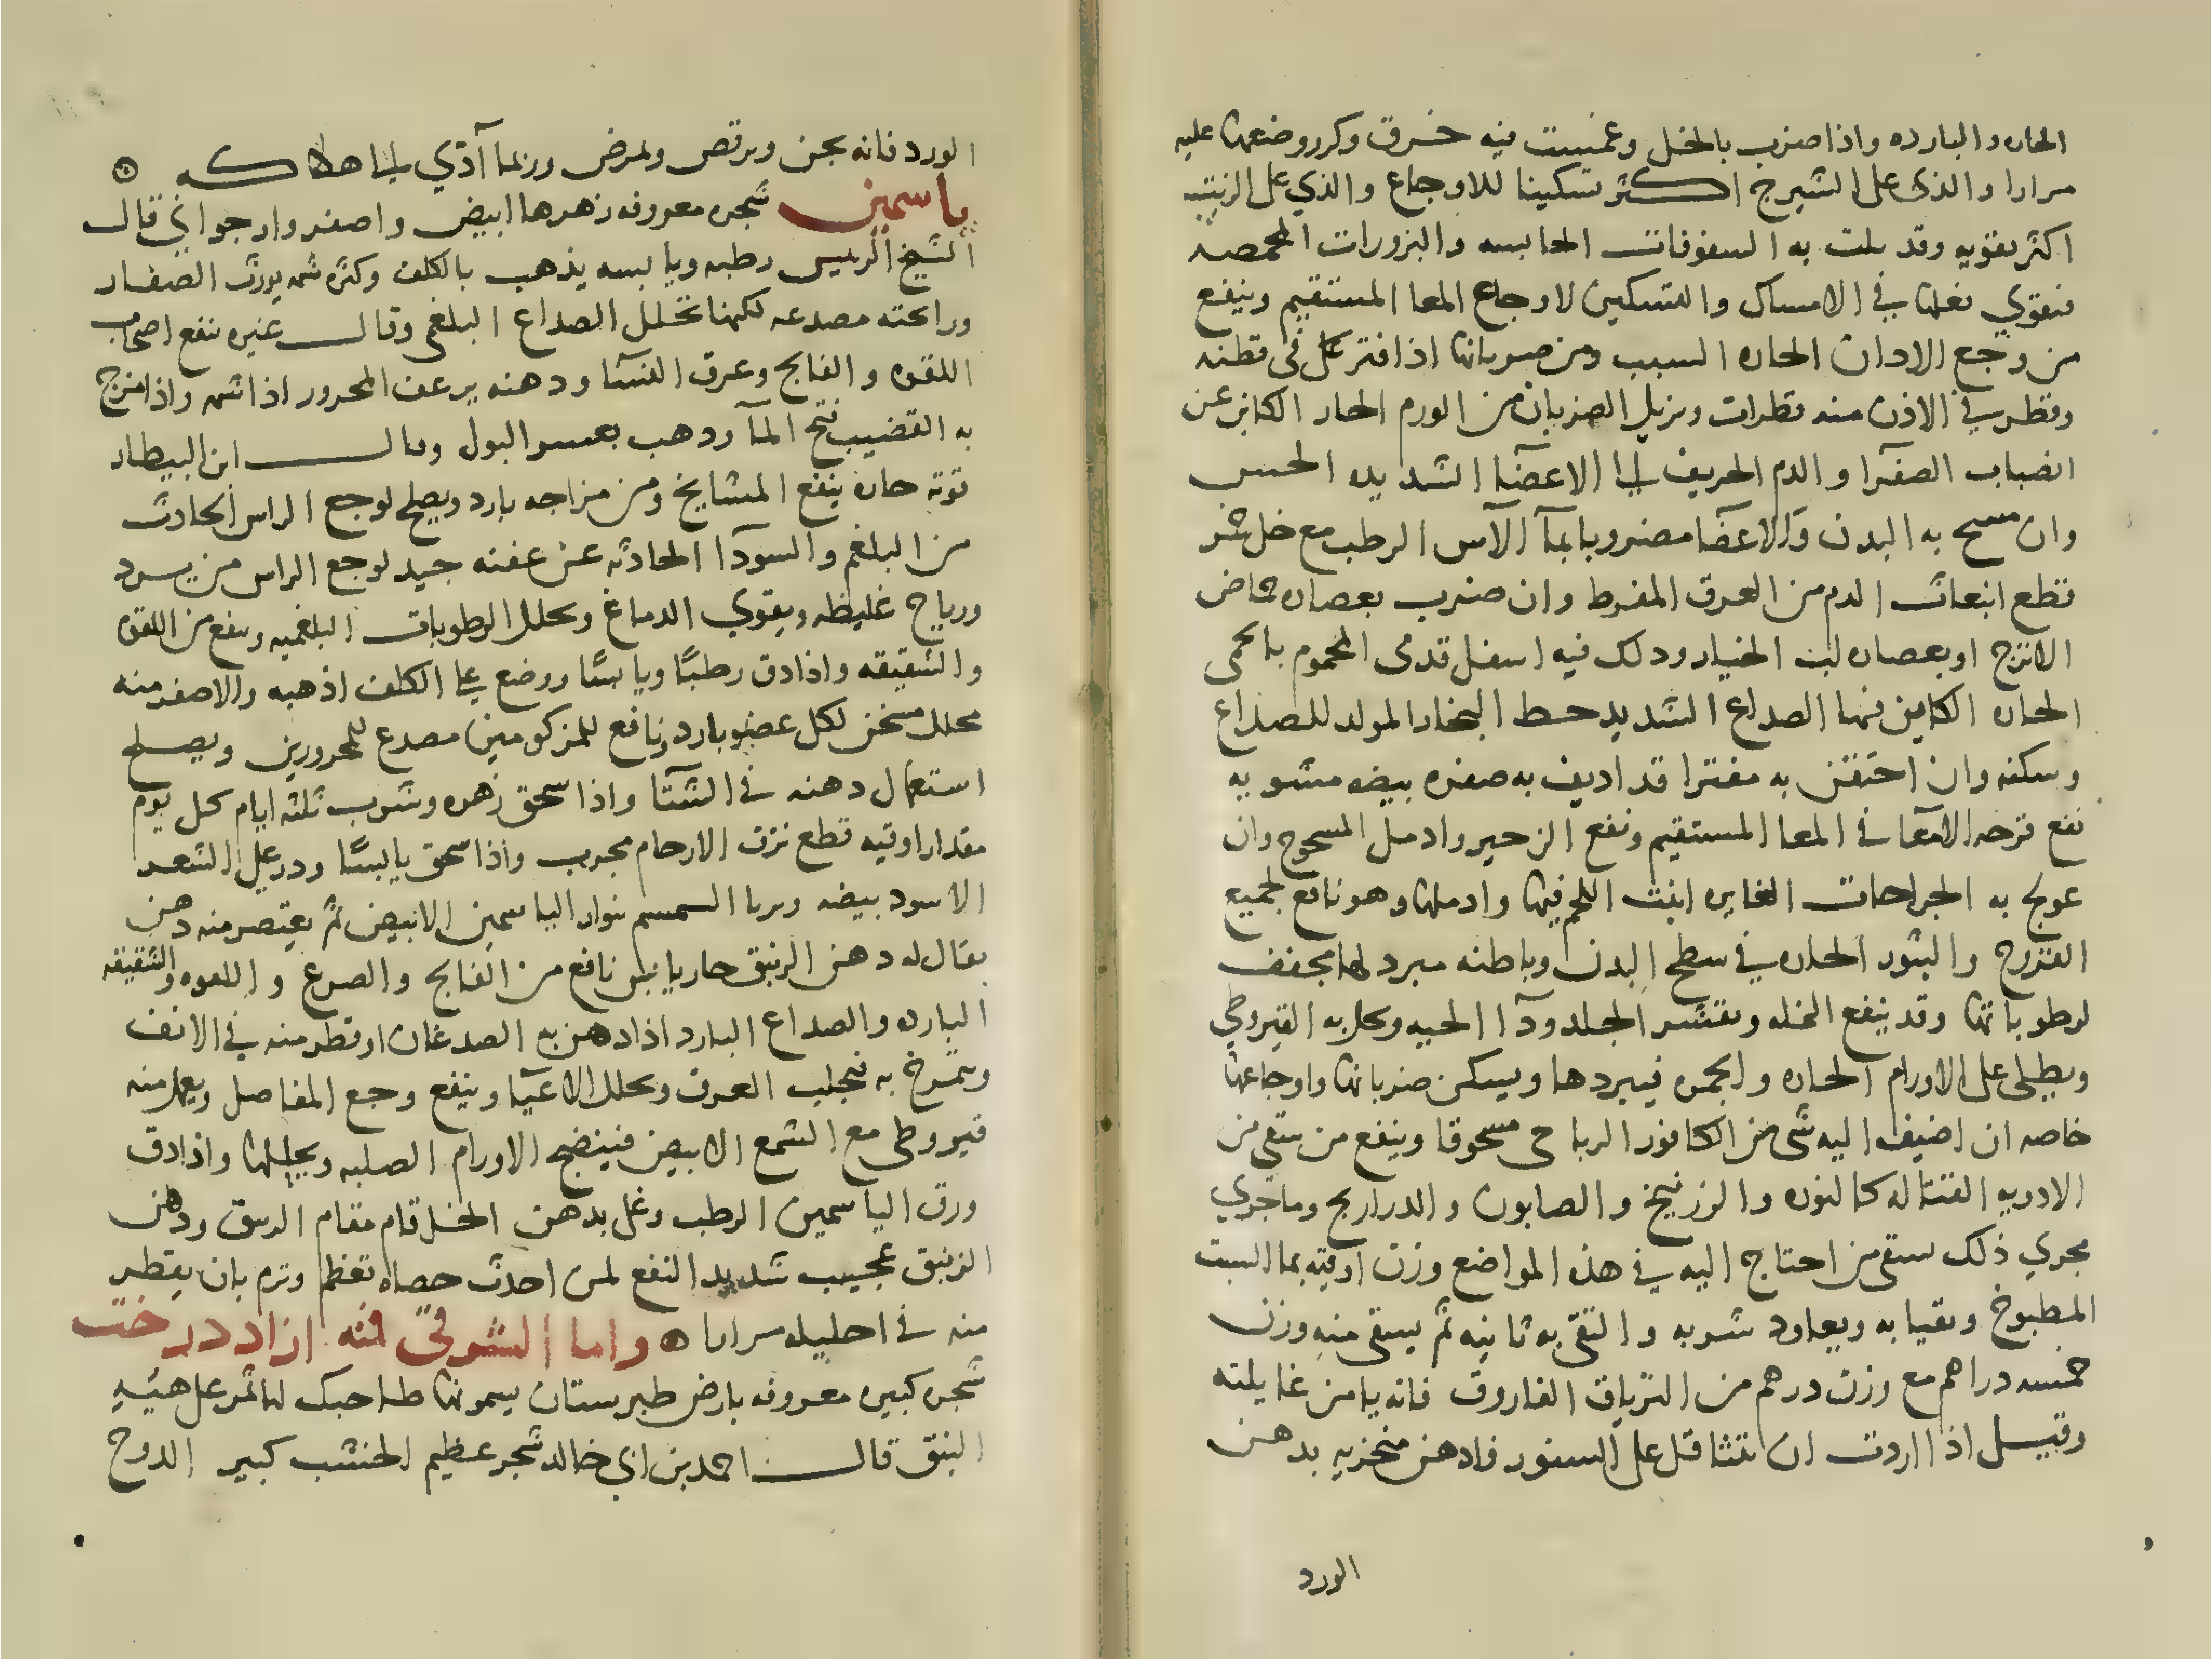 الحاره والبارده واذا ضرب بالخل وغمست فيه خرق وكرر وضعها عليه
مرارا والذي على الشيرج اكثر تسكينا للاوجاع والذي على الزيت
اكثر تقويه وقد بلت به السفوفات الحابسه والبزورات المحمصه
فتقوي فعلها في الامساك والتسكين لاوجاع المعا المستقيم وينفع
من وجع الاذان الحاره السبب ومن ضربانها اذا فتر على في قطنه
وقطر في الاذن منه قطرات ويزيل الضربان من الورم الحار الكاين عن
انصباب الصفرا والدم الحريف الي الاعضا الشديده الحس
وان مسح به البدن والاعضا مضروبا بمآ الآس الرطب مع خل خمر
قطع انبعاث الدم من العرق المفرط وان ضرب بعصاره حماض
الاترج او بعصاره لب الخيار ودلك فيه اسفل قدمى المحموم بالحمى
الحاره الكاين فيها الصداع الشديد حط البخار المولد للصداع
وسكنه وان احتقن به مفترا قد اديف به صفره بيضه مشويه
نفع قرحه الامعآ في المعا المستقيم ونفع الزحير وادمل السحوج وان
عولج به الجراحات الغايره انبت اللحم فيها وادملها وهو نافع لجميع
القروح والبثور الحاره في سطح البدن وباطنه مبرد لها مجفف
لرطوباتها وقد ينفع النمله وتقشر الجلد ودآ الحيه وتحل به القيروطي
ويطلى على الاورام الحاره والجمره فيبردها ويسكن ضربانها واوجاعها
خاصه ان اضيف اليه شي من الكافور الرباحى مسحوقا وينفع من سقي من
الادويه القتاله كالنوره والزرنيخ والصابون والدراريح وما جري
مجري ذلك سقي من احتاج اليه في هذه المواضع وزن اوقيه بما السبت
المطبوخ وتقيا به ويعاود شربه والتقي به ثانيه ثم يسقى منه وزن
خمسه دراهم مع وزن درهم من الترياق الفاروق فانه يامن غايلته
وقيل اذا اردت ان تتثاقل على السنور فادهن منخريه بدهن
الورد
الورد فانه يجن ويرقص ويمرض وربما آذي الي اهلاكه
ياسمين شجره معروفه زهرها ابيض واصفر وارجواني قال
الشيخ الرئيس رطبه ويابسه يذهب بالكلف وكثره شمه يورث الصفار
ورائحته مصدعه لكنها تحلل الصداع البلغمى وقال غيره ينفع اصحاب
اللقوه والفالج وعرق النسآ ودهنه يرعف المحرور اذا شمه واذا مرخ
به القضيب فتح المآ وذهب بعسر البول وقال ابن البيطار
قوته حاره ينفع المشايخ ومن مزاجه بارد ويصلح لوجع الراس الحادث
من البلغم والسودآ الحادثه عن عفنه جيد لوجع الراس من برد
ورياح غليظه ويقوي الدماغ ويحلل الرطوبات البلغميه وينفع من اللقوه
والشقيقه واذا دق رطبًا ويابسًا ووضع على الكلف اذهبه والاصفر منه
محلل مسخن لكل عضو بارد ونافع للمزكومين مصدع للمحرورين ويصلح
استعمال دهنه في الشتآ واذا سحق زهره وشرب ثلثه ايام كل يوم
مقدار اوقيه قطع نزف الارحام مجرب واذا سحق يابسًا وذر على الشعر
الاسود بيضه ويربا السمسم بنوار الياسمين الابيض ثم يعتصر منه دهن
يقال له دهن الزنبق حار يابس نافع من الفالج والصرع واللقوه والشقيقه
البارده والصداع البارد اذا دهن به الصدغان او قطر منه في الانف
ويتمرخ به فيجلب العرق ويحلل الاعيآ وينفع وجع المفاصل ويعمل منه
قيروطي مع الشمع الابيض فينضج الاورام الصلبه ويحللها واذا دق
ورق الياسمين الرطب وغلي بدهن الخل قام مقام الزنبق ودهن
الزنبق عجيب شديد النفع لمن احدث حصاه تعظم وترم بان يقطر
منه في احليله مرارا ه واما الشوقى فمنه ازاددرخت
شجره كبيره معروفه بارض طبرستان يسمونها طاحبك لها ثمر على هيئه
النبق قال احمد بن ابي خالد شجر عظيم الخشب كبير الدوح